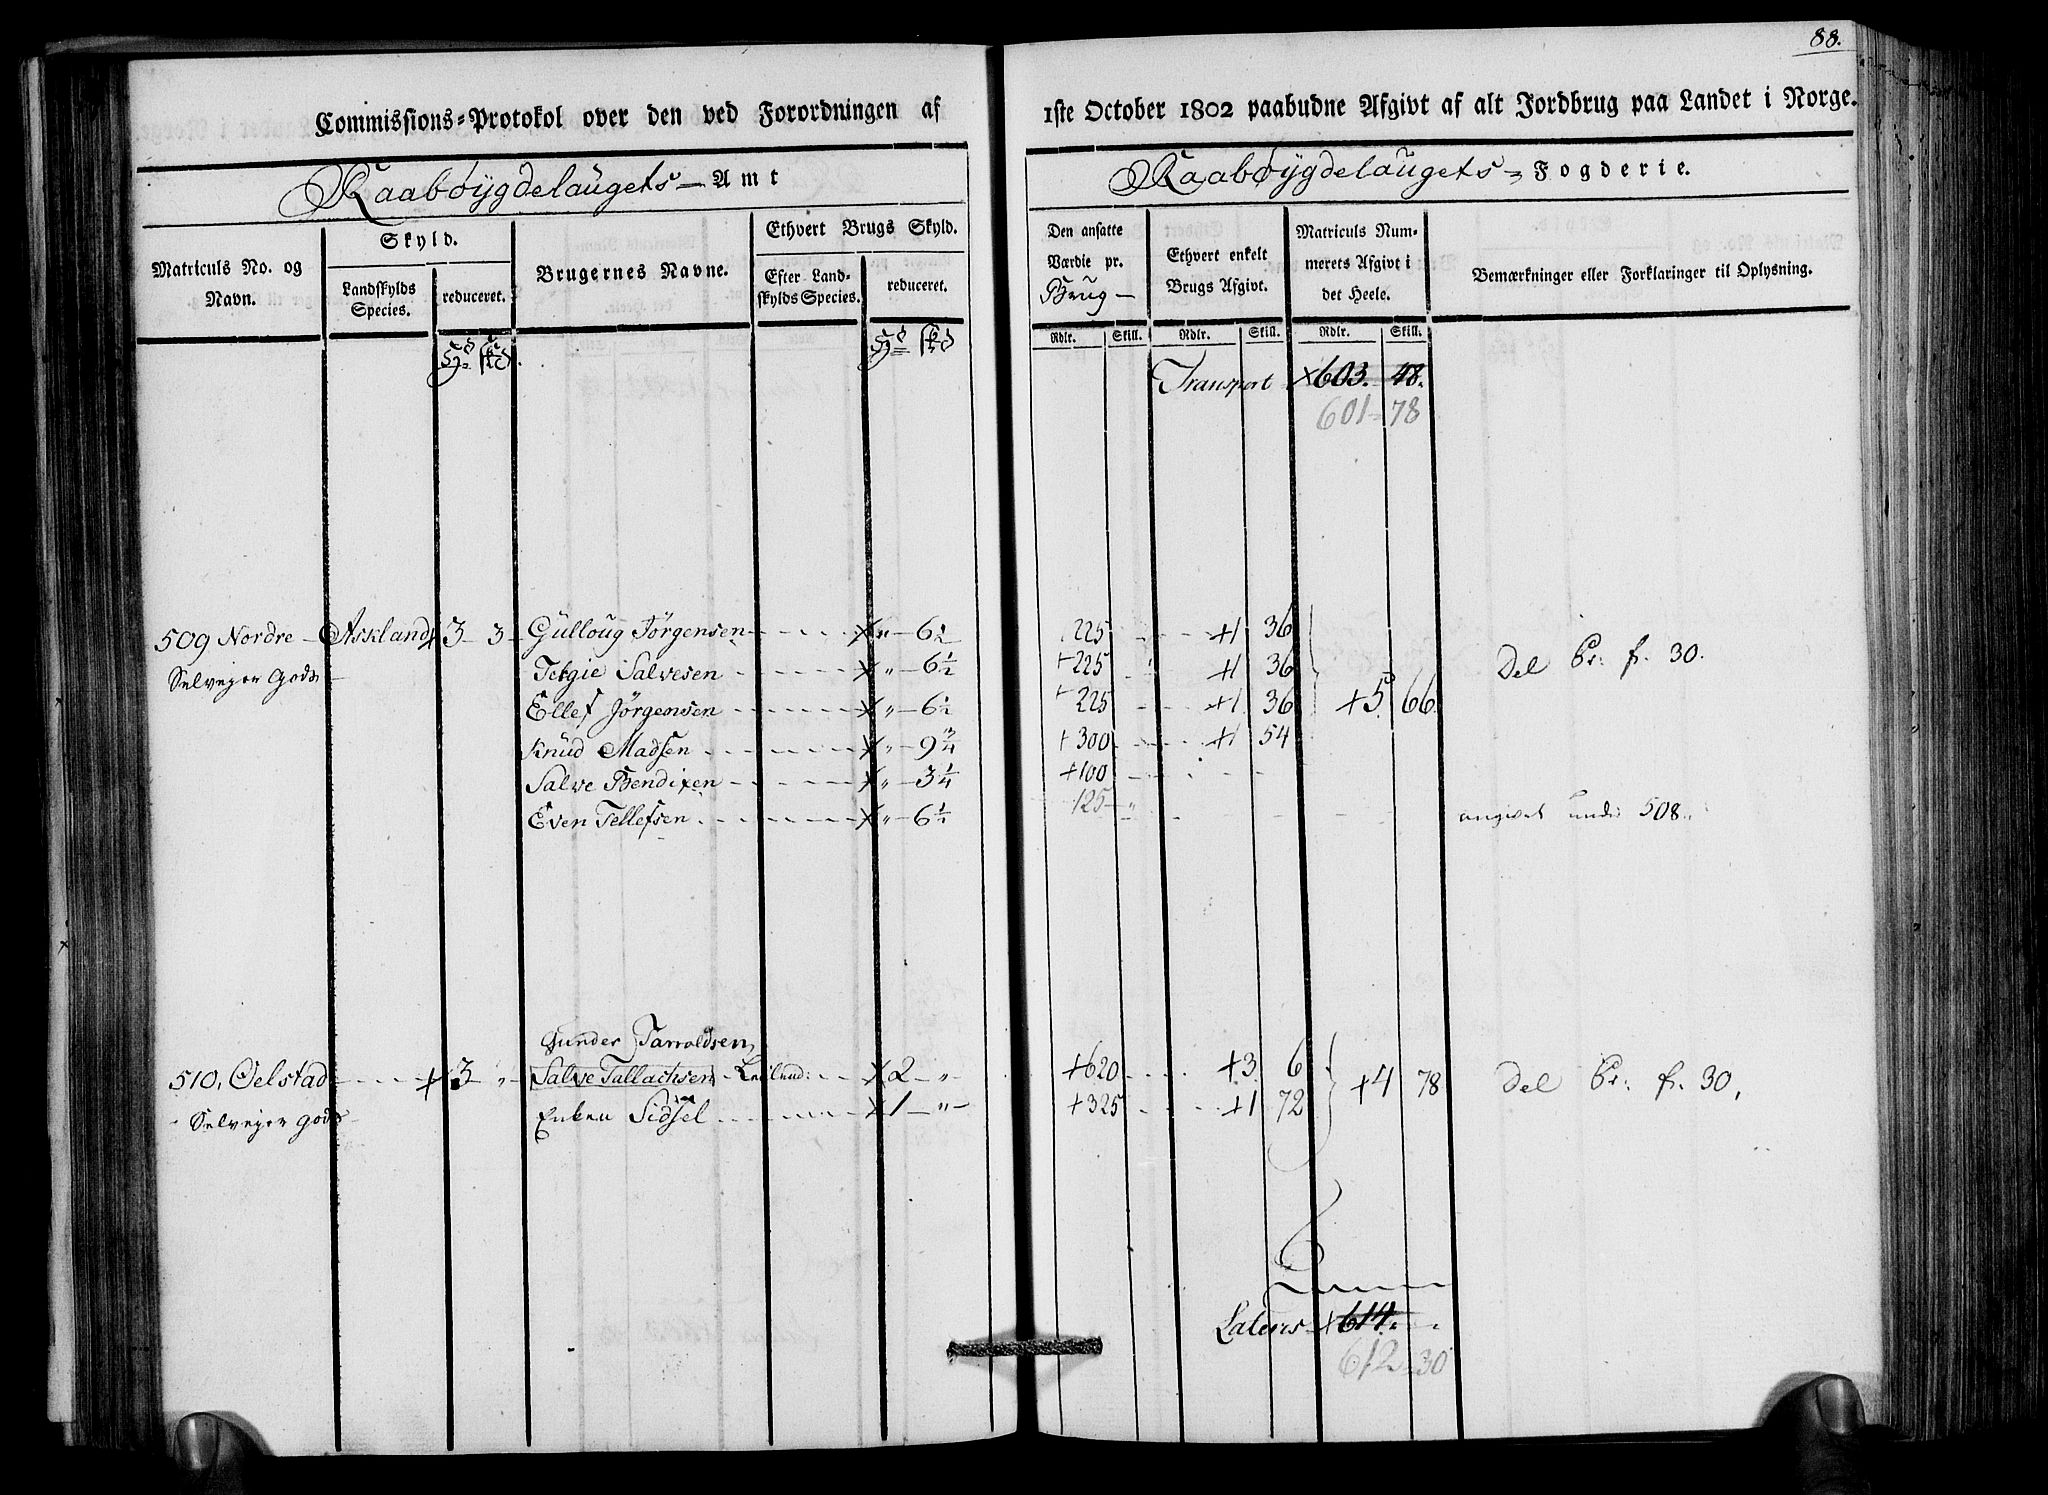 88.
Commissions-Protokol over den ved Forordningen af 1ste October 1802 paabudne Afgivt af alt Jordbrug paa Landet i Norge.
Raabøygdelaugets Amt
Raabøygdelaugets Fogderie.
Matriculs No. og Navn.
Skyld.
Landskylds Species.
reduceret.
Brugernes Navne.
Ethvert Brugs Skyld.
Efter Landskylds Species.
reduceret.
Den ansatte Værdie pr. Brug
Ethvert enkelt Brugs Afgivt.
Matriculs Nummerets Afgivt i det Heele.
Bemærkninger eller Forklaringer til Oplysning.
Rdlr. Skill. Rdlr. Skill. Rdlr. Skill.
Transport 603. 48.
601-78
509 Nordre Askland 3 3 Gülloug Jörgensen " 6½ 225 +1 36 Del Pr: f. 30.
Selvejer Gods Tergie Salvesen " 6½ +225 +1 36
Ellef Jörgensen " 6½ +225 +1. 36 +5. 66.
Knüd Madsen " 9¾ +300 +1 54
Salve Bendixen " 3¼ +100
Even Tellefsen " 6½ 125 angivet under 508.
Gunder Tarraldsen
510, Oelstad +3 " Salve Tallachsen Leilend: 2 " +620 +3. 6 +4 78 Del Pr: f. 30,
Selvejer Gods Enken Sidsel 1 " +325 +1 72
Lateris 614.
612-30